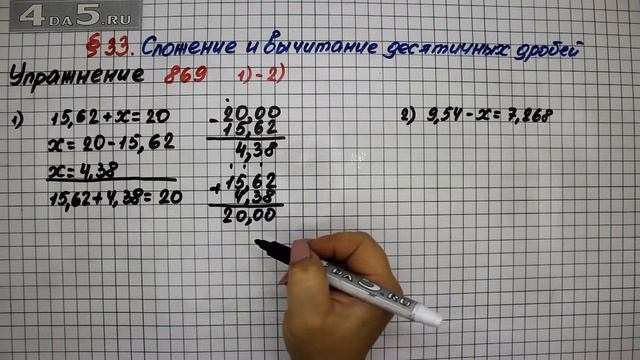 4DA5.RU
§ 33. Сложение и вычитание десятичных дробей
Упражнение 869 1)-2)
1) 15,62+x=20
x=20-15,62
x=4,38
15,62+4,38=20
-20,00
15,62
4,38
+15,62
4,38
20,00
2) 9,54-x=7,268
4DA5.RU